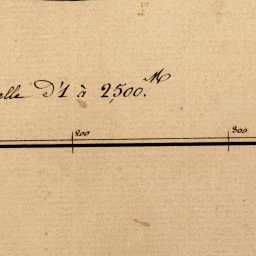 elle d'1 à 2,500.M
200 300